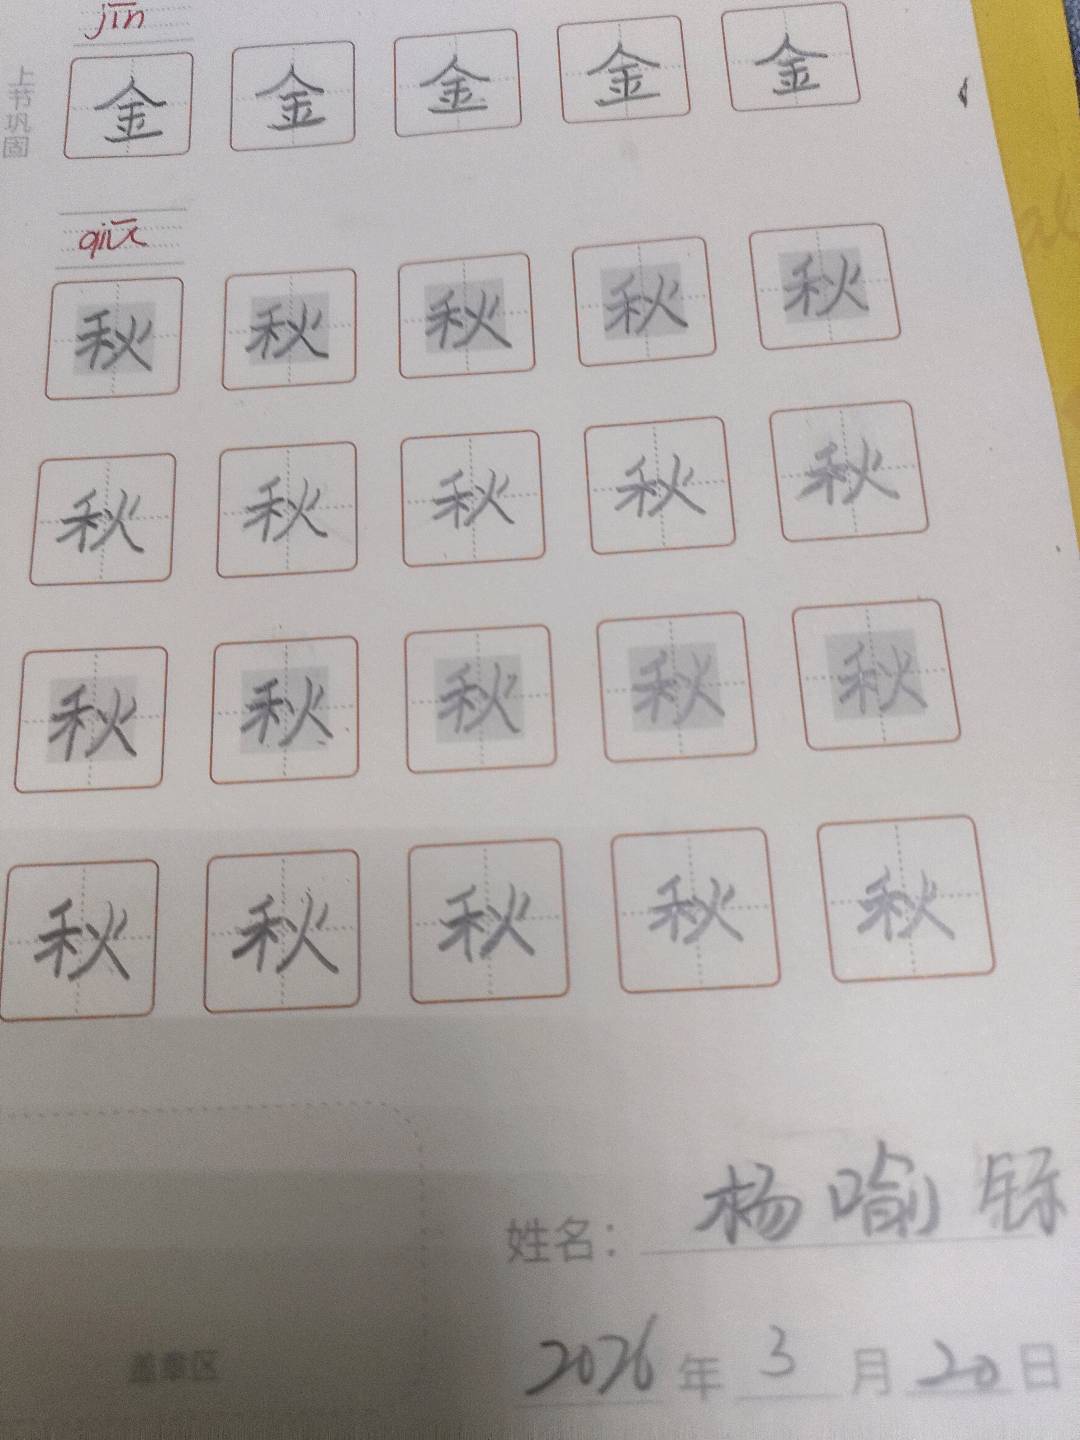 jīn
上节巩固
金 金 金 金 金
qiū
秋 秋 秋 秋 秋
秋 秋 秋 秋 秋
秋 秋 秋 秋 秋
秋 秋 秋 秋 秋
姓名： 杨 喻
盖章区
2026 年 3 月 20 日